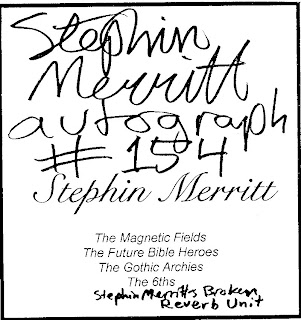 Stephin
Merritt
autograph
# 154
Stephin Merritt
The Magnetic Fields
The Future Bible Heroes
The Gothic Archies
The 6ths
Stephin Merritt's Broken
Reverb Unit